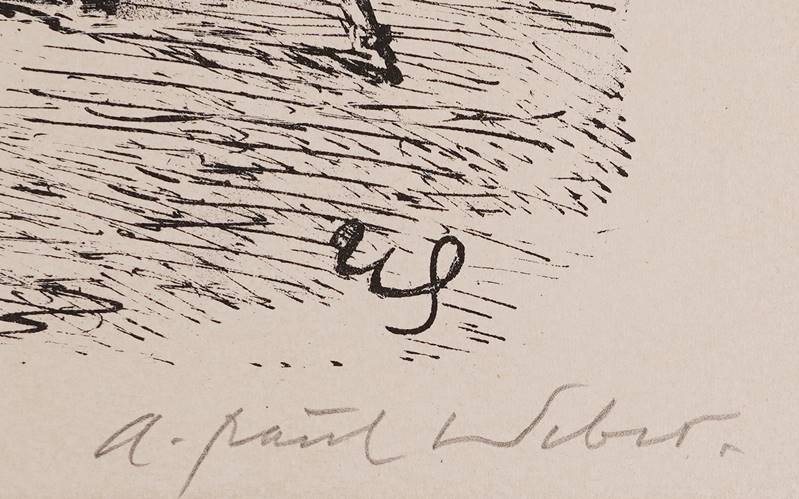 A. Paul Weber.